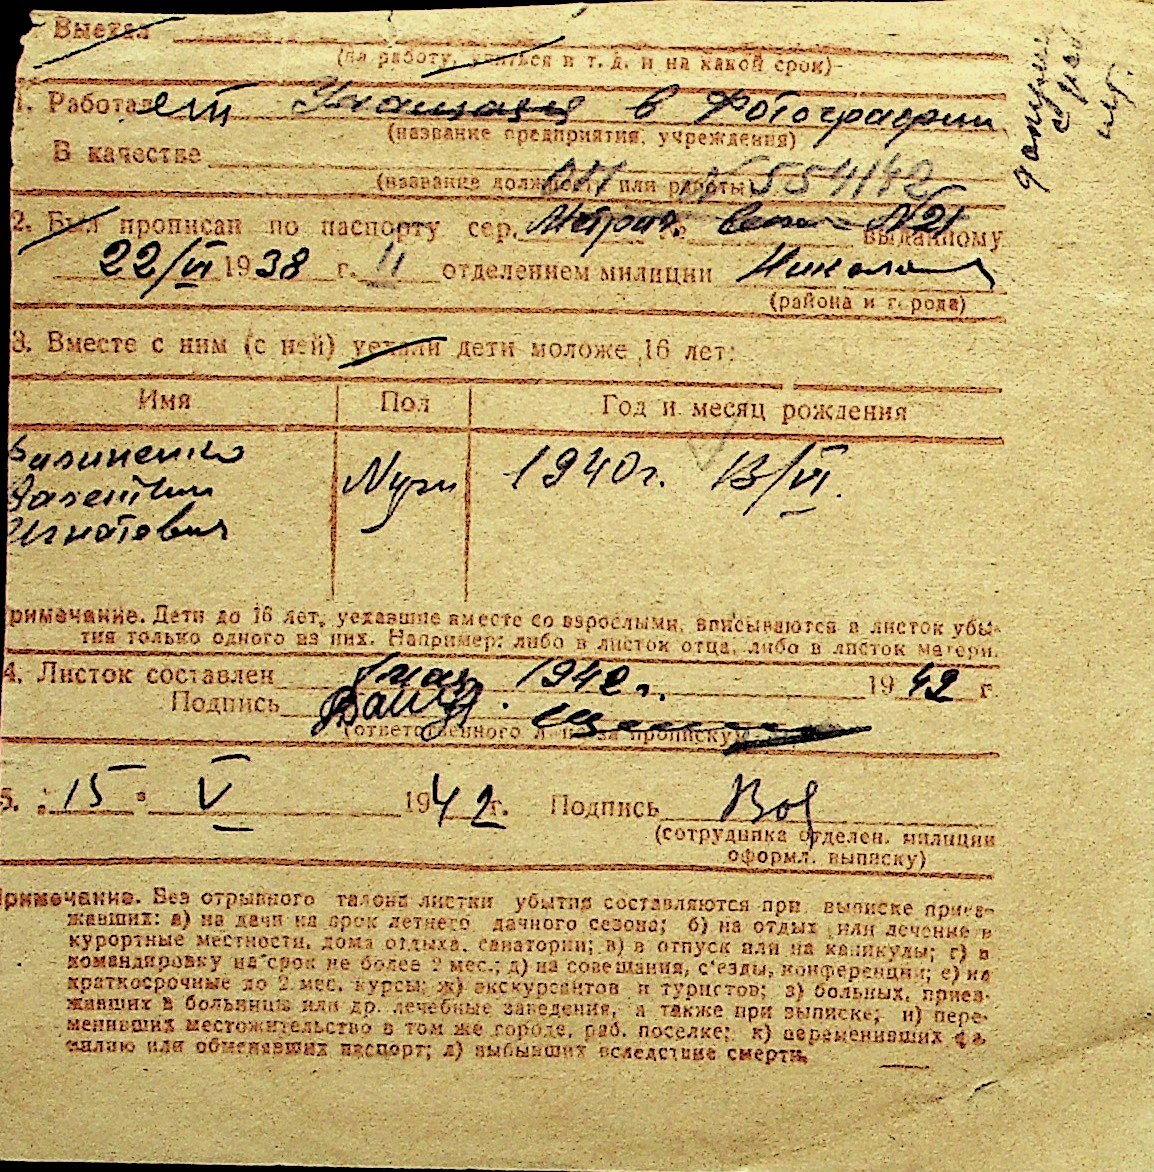 Выехал
(на работу, учиться и т. д. и на какой срок)
1. Работал ет Учащаяся в Фотографии
(название предприятия, учреждения)
В качестве
(название должности или работы) № 554142
2. Был прописан по паспорту сер. Метрич. № 21 выданному
22/VI 1938 г. II отделением милиции
(района и города)
3. Вместе с ним (с ней) уехали дети моложе 16 лет:
Имя Пол Год и месяц рождения
Валентин Муж 1940 г. 13/VI.
Игнатович
Примечание. Дети до 16 лет, уехавшие вместе со взрослыми, вписываются в листок убы-
тия только одного из них. Например: либо в листок отца, либо в листок матери.
4. Листок составлен 1 мая 1942 г. 1942 г.
Подпись
(ответственного лица за прописку)
5. " 15 " V 1942 г. Подпись
(сотрудника отделен. милиции
оформл. выписку)
Примечание. Без отрывного талона листки убытия составляются при выписке приез-
жавших: а) на дачи на срок летнего дачного сезона; б) на отдых или лечение в
курортные местности, дома отдыха, санатории; в) в отпуск или на каникулы; г) в
командировку на срок не более 2 мес.; д) на совещания, с'езды, конференции; е) на
краткосрочные до 2 мес. курсы; ж) экскурсантов и туристов; з) больных, приез-
жавших в больницы или др. лечебные заведения, а также при выписке; и) пере-
менивших местожительство в том же городе, раб. поселке; к) переменивших фа-
милию или обменявших паспорт; л) выбывших вследствие смерти.